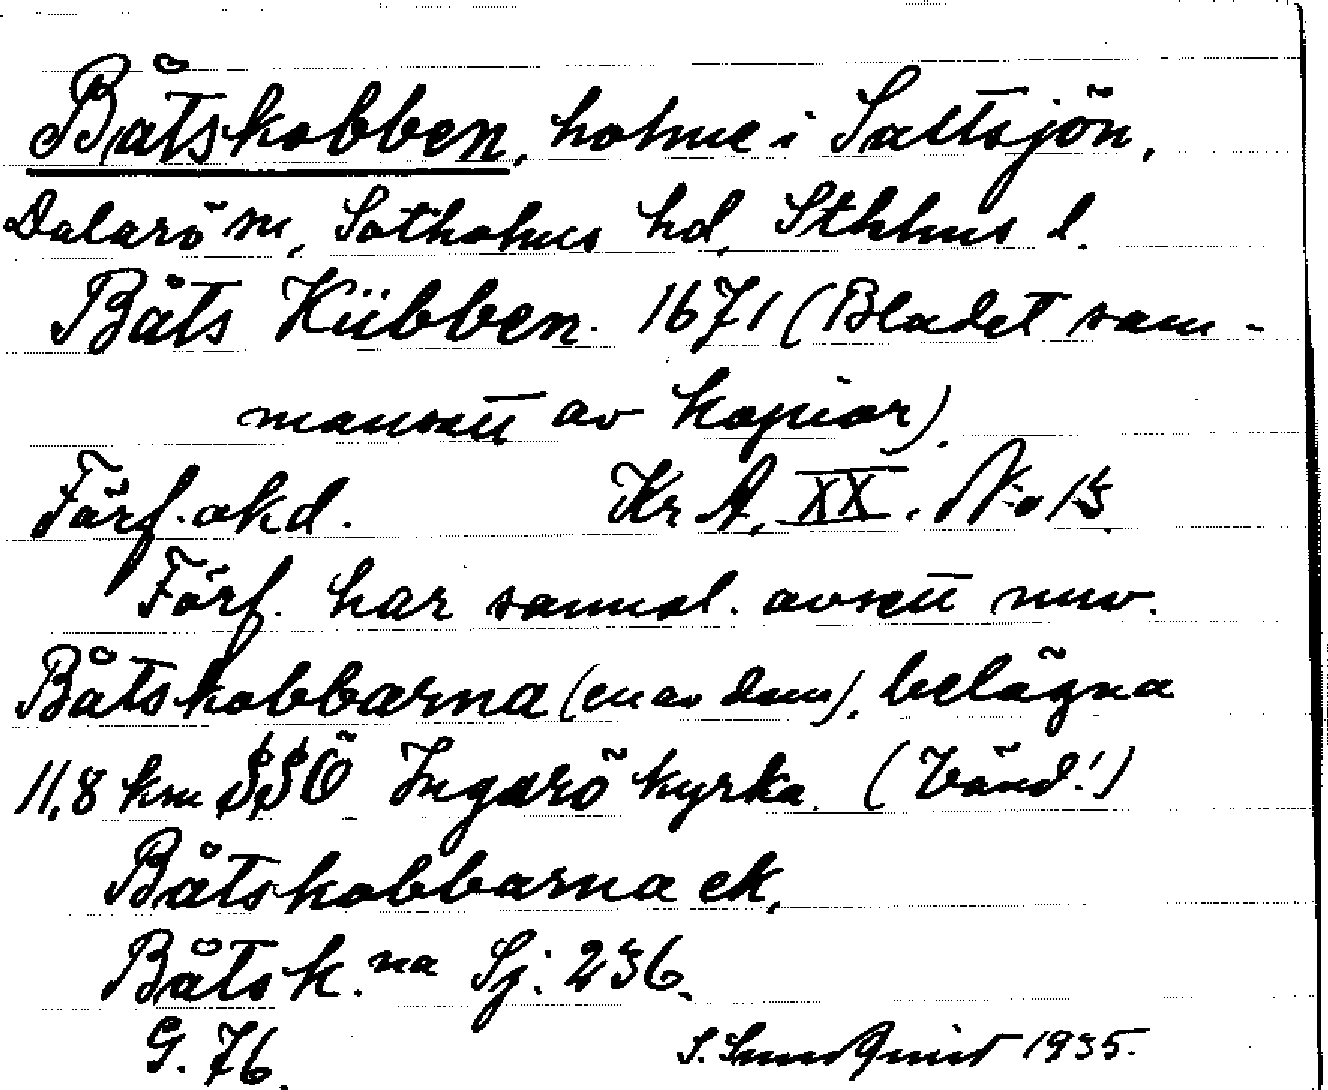 Båtskobben, holme i Saltsjön,
Dalarö sn, Sotholms hd, Sthlms l.
Båts Kübben. 1671 (Bladet sam-
mansatt av kopior).
Förf. okd. Kr A. XX. No 13
Förf. har sannol. avsett nuv.
Båtskobbarna (en av dem), belägna
11,8 km SSÖ Ingarö kyrka. (Vänd!)
Båtskobbarna ek.
Båtsk.na Sj. 236.
G. 76.
S. Sundquist 1935.